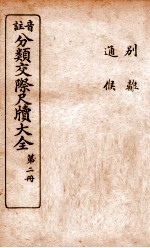 別離
通候
音註
分類交際尺牘大全
第二冊